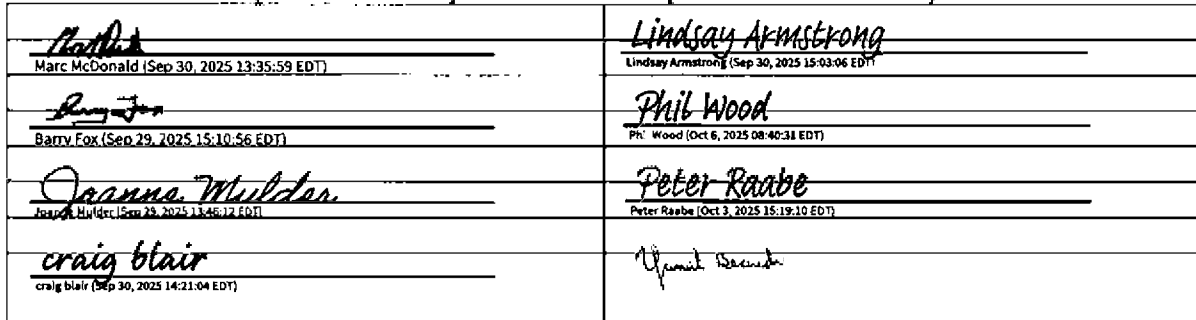 Marc McDonald (Sep 30, 2025 13:35:59 EDT)
Barry Fox (Sep 29, 2025 15:10:56 EDT)
Joanne Mulder
Joanne Mulder (Sep 29, 2025 13:46:12 EDT)
craig blair
craig blair (Sep 30, 2025 14:21:04 EDT)
Lindsay Armstrong
Lindsay Armstrong (Sep 30, 2025 15:03:06 EDT)
Phil Wood
Phil Wood (Oct 6, 2025 08:40:31 EDT)
Peter Raabe
Peter Raabe (Oct 3, 2025 15:19:10 EDT)